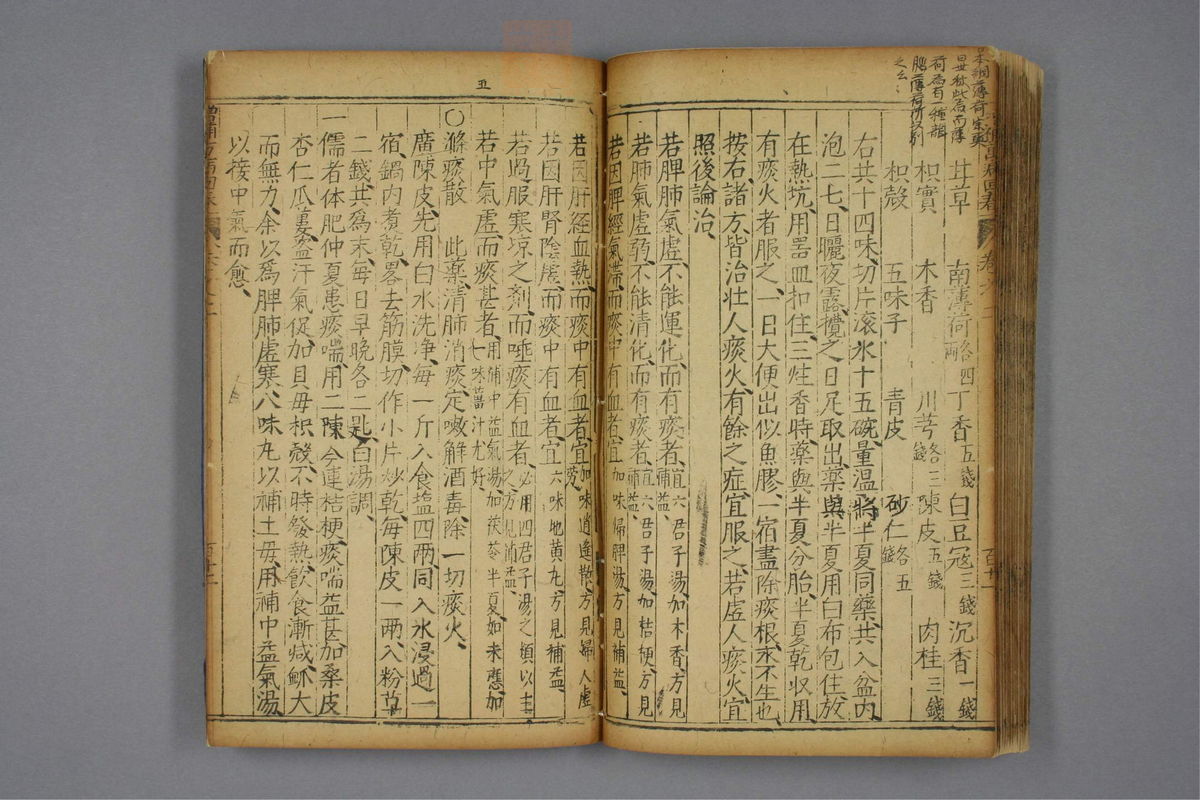 甘草 南薄荷各四兩 丁香五錢 白豆冦三錢 沉香一錢
枳實 木香 川芎各三錢 陳皮五錢 肉桂三錢
枳殼 五味子 青皮 砂仁各五錢
右共十四味切片滾水十五碗量溫將半夏同藥共入盆內
泡二七日曬夜露攪之日足取出藥與半夏用白布包住放
在熱坑用器皿扣住三炷香時藥與半夏分胎半夏乾収用
有痰火者服之一日大便出似魚膠一宿盡除痰根永不生也
按右諸方皆治壯人痰火有餘之症宜服之若虛人痰火宜
照後論治
若脾肺氣虛不能運化而有痰者宜六君子湯加木香方見補益
若肺氣虛弱不能清化而有痰者宜六君子湯加桔梗方見補益
若因脾經氣滯而痰中有血者宜加味歸脾湯方見補益
若因肝經血熱而痰中有血者宜加味逍遙散方見婦人虛勞
若因肝腎陰虛而痰中有血者宜六味地黃丸方見補益
若過服寒凉之剤而唾痰有血者必用四君子湯之類以主之方見補益
若中氣虛而痰甚者用補中益氣湯加茯苓半夏如未應加一味薑汁尤好
○滌痰散 此藥清肺消痰定嗽解酒毒除一切痰火
廣陳皮先用白水洗净每一斤入食塩四兩同入水浸過一
宿鍋內煮乾畧去筋膜切作小片炒乾每陳皮一兩入粉草
二錢共爲末每日早晚各二匙白湯調
一儒者体肥仲夏患痰喘用二陳芩連桔梗痰喘益甚加桑皮
杏仁瓜蔞盗汗氣促加貝母枳殼不時發熱飲食漸减穌大
而無力余以爲脾肺虛寒八味丸以補土母用補中益氣湯
以接中氣而愈